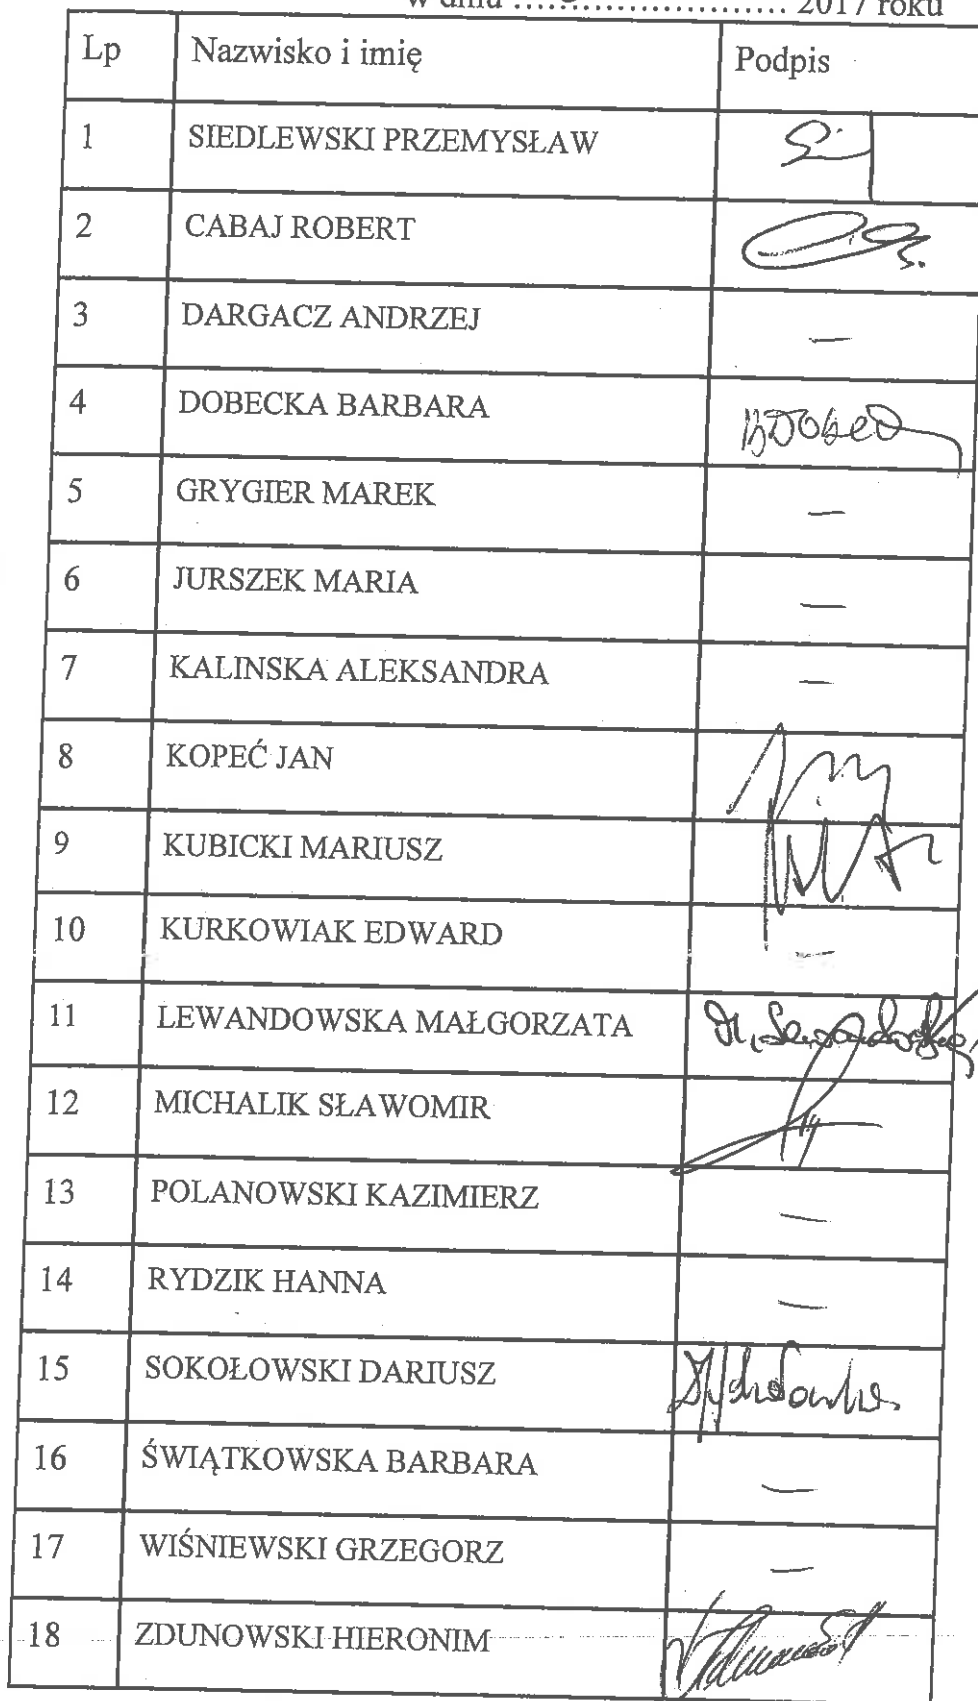 w dniu ........................ 2017 roku
Lp Nazwisko i imię Podpis
1 SIEDLEWSKI PRZEMYSŁAW
2 CABAJ ROBERT
3 DARGACZ ANDRZEJ —
4 DOBECKA BARBARA
5 GRYGIER MAREK —
6 JURSZEK MARIA —
7 KALINSKA ALEKSANDRA —
8 KOPEĆ JAN
9 KUBICKI MARIUSZ
10 KURKOWIAK EDWARD —
11 LEWANDOWSKA MAŁGORZATA M. Lewandowska
12 MICHALIK SŁAWOMIR
13 POLANOWSKI KAZIMIERZ —
14 RYDZIK HANNA —
15 SOKOŁOWSKI DARIUSZ
16 ŚWIĄTKOWSKA BARBARA —
17 WIŚNIEWSKI GRZEGORZ —
18 ZDUNOWSKI HIERONIM